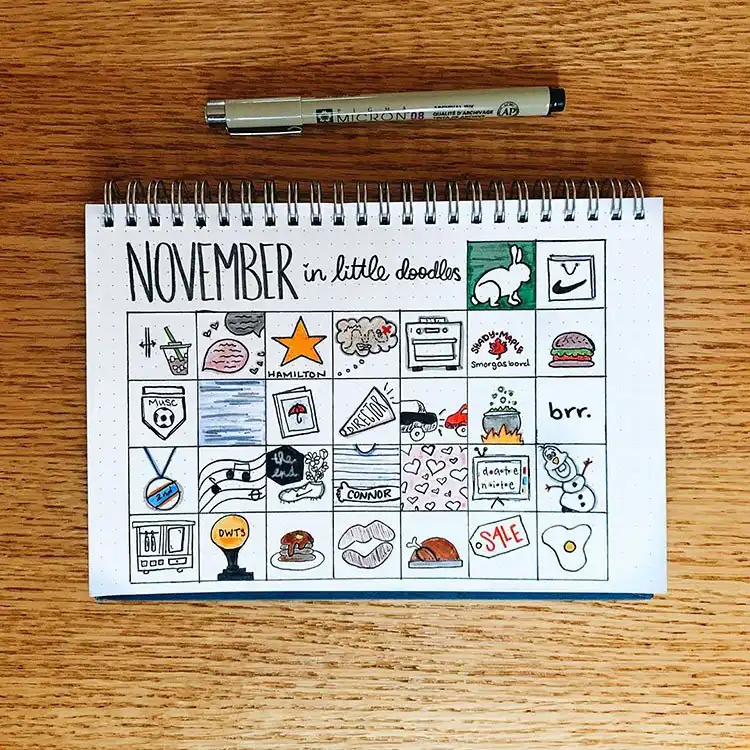 PIGMA
MICRON 08
ARCHIVAL INK
QUALITÉ D'ARCHIVAGE
AP
NOVEMBER in little doodles
HAMILTON
SHADY MAPLE
Smorgasbord
MUSC
DIRECTOR
brr.
2nd
the
end
CONNOR
date
nite
DWTS
SALE